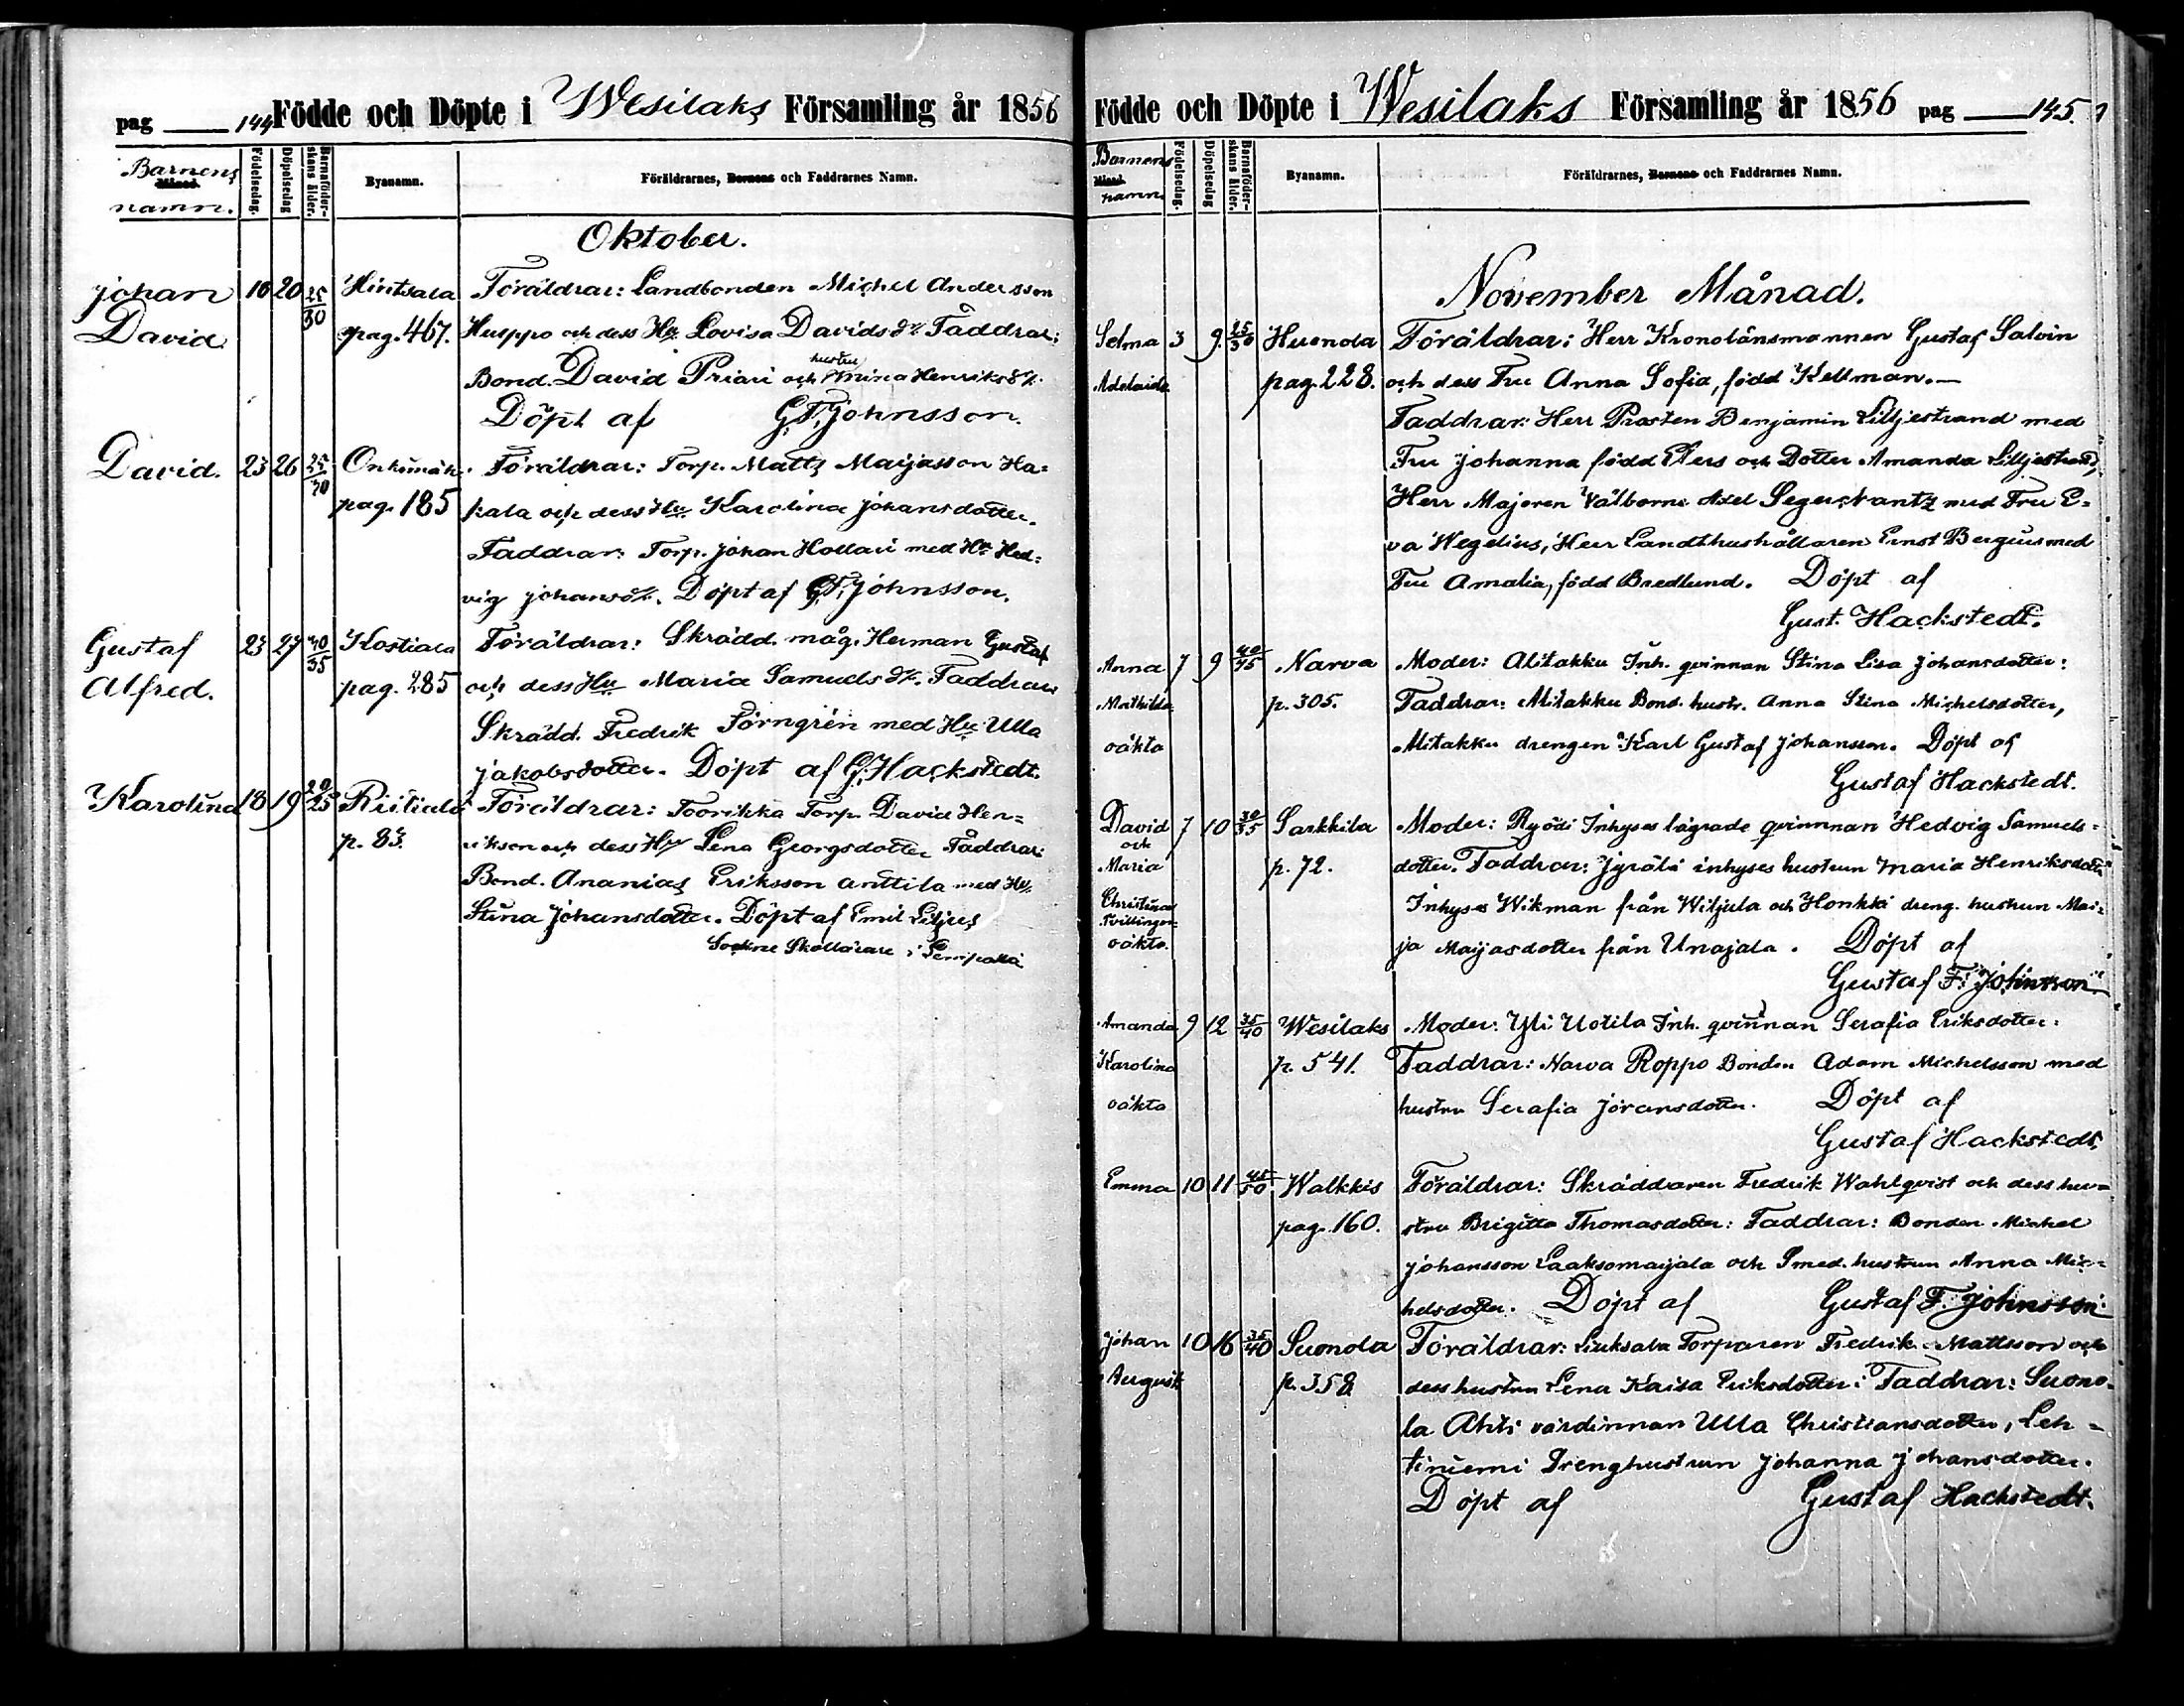 pag 144
Födde och Döpte i Wesilaks Församling år 1856
Barnens
Månad.
namn.
Födelsedag.
Döpelsedag
Barnaföder-
skans ålder.
Byanamn.
Föräldrarnes, Barnens och Faddrarnes Namn.
Oktober.
Johan 16 20 25/30 Hintsala Föräldrar: Landbonden Michel Andersson
David pag. 467. Huppo och dess Hu Lovisa Davidsdr. Faddrar:
hustru
Bond. David Priari och Henriksdr.
Döpt af G.F. Johnsson.
David. 23 26 Föräldrar: Torp. Matts Maijasson Ha=
pag. 185 kala och dess Hu Karolina Johansdotter.
Faddrar: Torp. Johan Hollari med Hu Hed=
vig Johansdr. Döpt af G.F. Johnsson.
Gustaf 23 27 Kostiala Föräldrar: Skrädd. måg. Herman Gustaf
Alfred. pag. 285 och dess Hu Maria Samuelsdr. Faddrar
Skrädd. Fredrik Törngrén med Hu Ulla
Jakobsdotter. Döpt af G. Hackstedt.
Karolina 18 19 20/25 Riitiala Föräldrar: Toorikka Torp. David Hen=
p. 83. rikson och dess Hu Lena Georgsdotter Faddrar:
Bond. Ananias Eriksson Anttila med Hu
Stina Johansdotter. Döpt af Emil Liljus
Sockne Skollärare i
Födde och Döpte i Wesilaks Församling år 1856 pag 145.
Barnens
Månad.
namn
Födelsedag.
Döpelsedag
Barnaföder-
skans ålder.
Byanamn.
Föräldrarnes, Barnens och Faddrarnes Namn.
November Månad.
Selma 3 9. 25/30 Huonola Föräldrar: Herr Kronolänsmannen Gustaf Salvin
Adelaide pag. 228. och dess Fru Anna Sofia, född Kellman.—
Faddrar: Herr Prosten Benjamin Liljestrand med
Fru Johanna född Elers och Dotter Amanda Liljestrand,
Herr Majoren Välborne Axel Segerstrantz med Fru E=
va Wegelius, Herr Landthushållaren Ernst Bergius med
Fru Amalia, född Bredlund. Döpt af
Gust. Hackstedt.
Anna 7 9 Narva Moder: Alitakku Inh. qvinnan Stina Lisa Johansdotter:
Mathilda p. 305. Faddrar: Alitakku Bond. hustr. Anna Stina Michelsdotter,
oäkta Alitakku drengen Karl Gustaf Johansson. Döpt af
Gustaf Hackstedt.
David 7 10 30/35 Sarkkila Moder: Ryödi Inhyses lägrade qvinnnan Hedvig Samuels=
och
Maria p. 72. dotter. Faddrar: Jyrälä inhyses hustrun Maria Henriksdotter
Christina
Tvillingar Inhyses Wikman från Wiljula och Honkki dreng. hustrun Mai=
oäkta. ja Maijasdotter från Unajala. Döpt af
Gustaf F. Johnsson
Amanda 9 12 35/40 Wesilaks Moder: Yli Uotila Inh. qvinnan Serafia Eriksdotter:
Karolina p. 541. Faddrar: Narva Roppo Bonden Adam Michelsson med
oäkta hustru Serafia Jöransdotter. Döpt af
Gustaf Hackstedt.
Emma 10 11 45/50 Walkkis Föräldrar: Skräddaren Fredrik Wahlqvist och dess hu=
pag. 160. stru Brigitta Thomasdotter: Faddrar: Bonden Michel
Johansson Laaksomaijala och Smed. hustrun Anna Mic=
helsdotter. Döpt af Gustaf F. Johnsson
Johan 10 16 35/40 Suonola Föräldrar: Liuksala Torparen Fredrik Mattsson och
August p. 358. dess hustru Lena Kaisa Eriksdotter: Faddrar: Suono-
la Ahti värdinnan Ulla Christiansdotter, Leh=
tiniemi Drenghustrun Johanna Johansdotter.
Döpt af Gustaf Hackstedt.